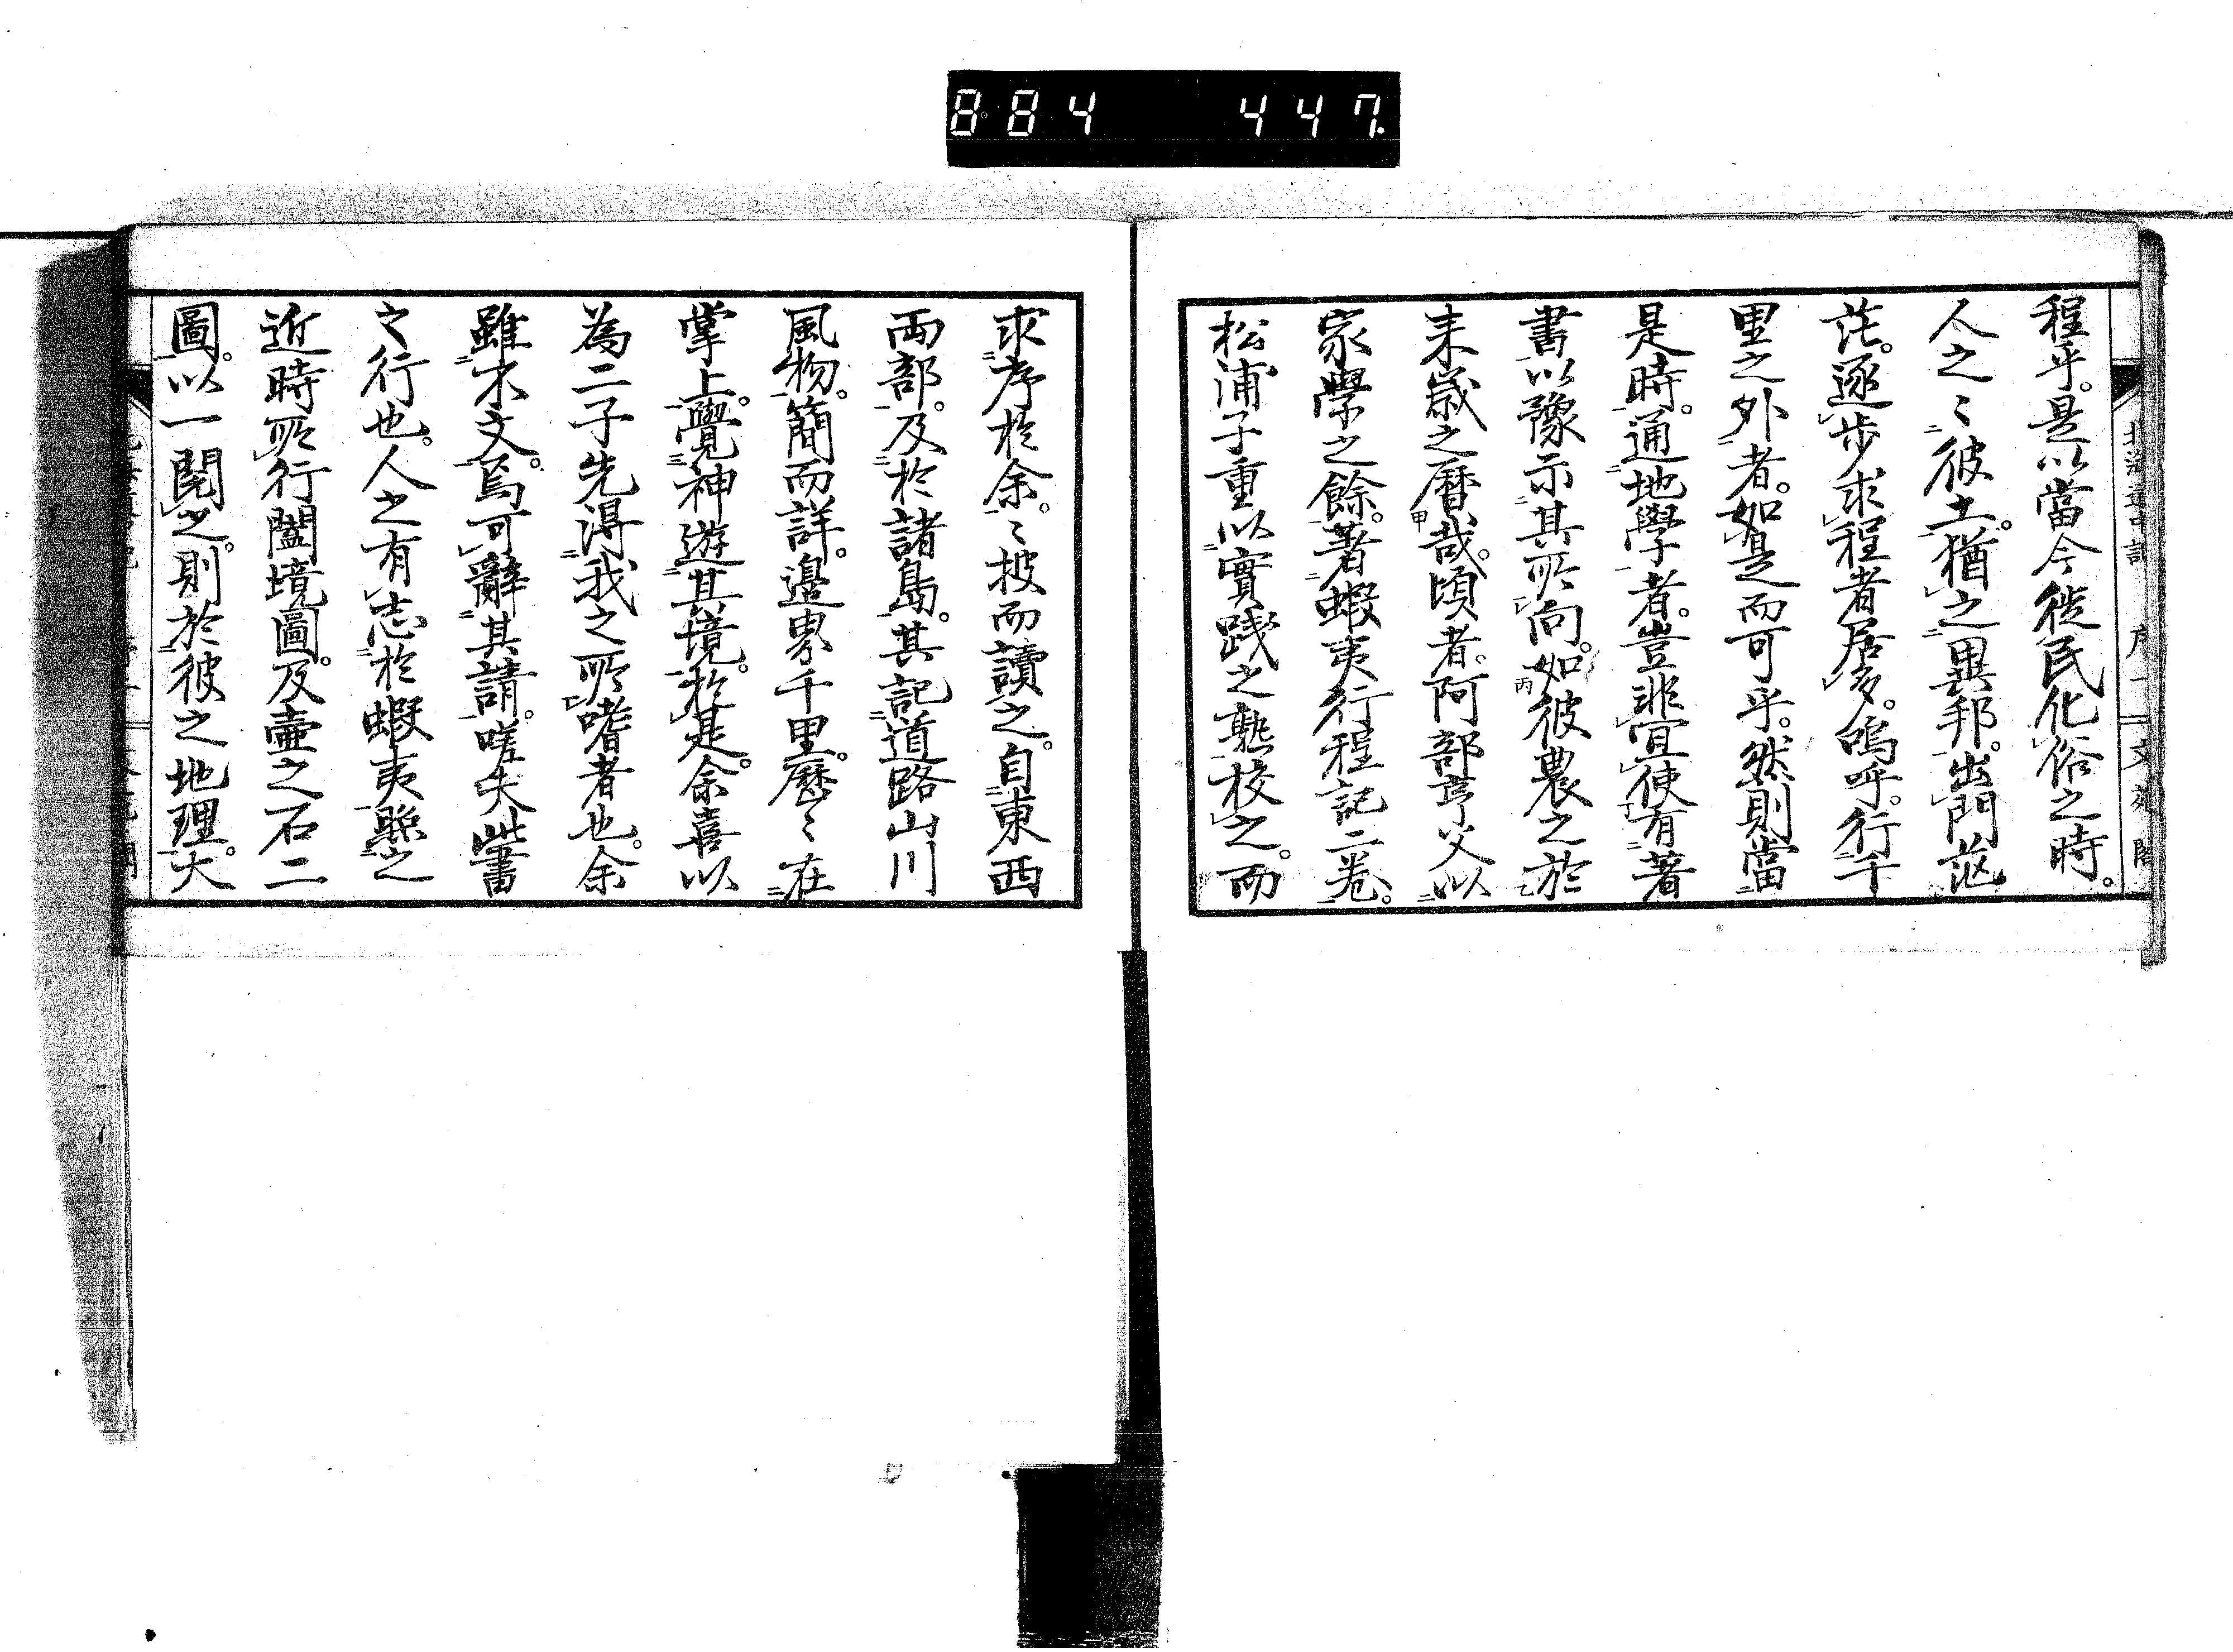 884 447
程乎。是以當今徙民化俗之時。
人之〻彼土。猶之異邦。出門茫
茫。逐步求程者居多。嗚呼。行千
里之外者。如是而可乎。然則當
是時。通地學者。豈非宜使有著
書以豫示其所向。如彼農之於
耒歳之暦哉。頃者。阿部哼父以
家學之餘。著蝦夷行程記二卷。
松浦子重以實踐之熟校之。而
求序於余。〻披而讀之。自東西
兩部。及於諸島。其記道路山川
風物。簡而詳。邊界千里。歷〻在
掌上。覺神遊其境。於是。余喜以
為二子先得我之所嗜者也。余
雖不文。焉可辭其請。嗟夫此書
之行也。人之有志於蝦夷縣之
近時所行闔境圖。及壷之石二
圖。以一閱之。則於彼之地理。大